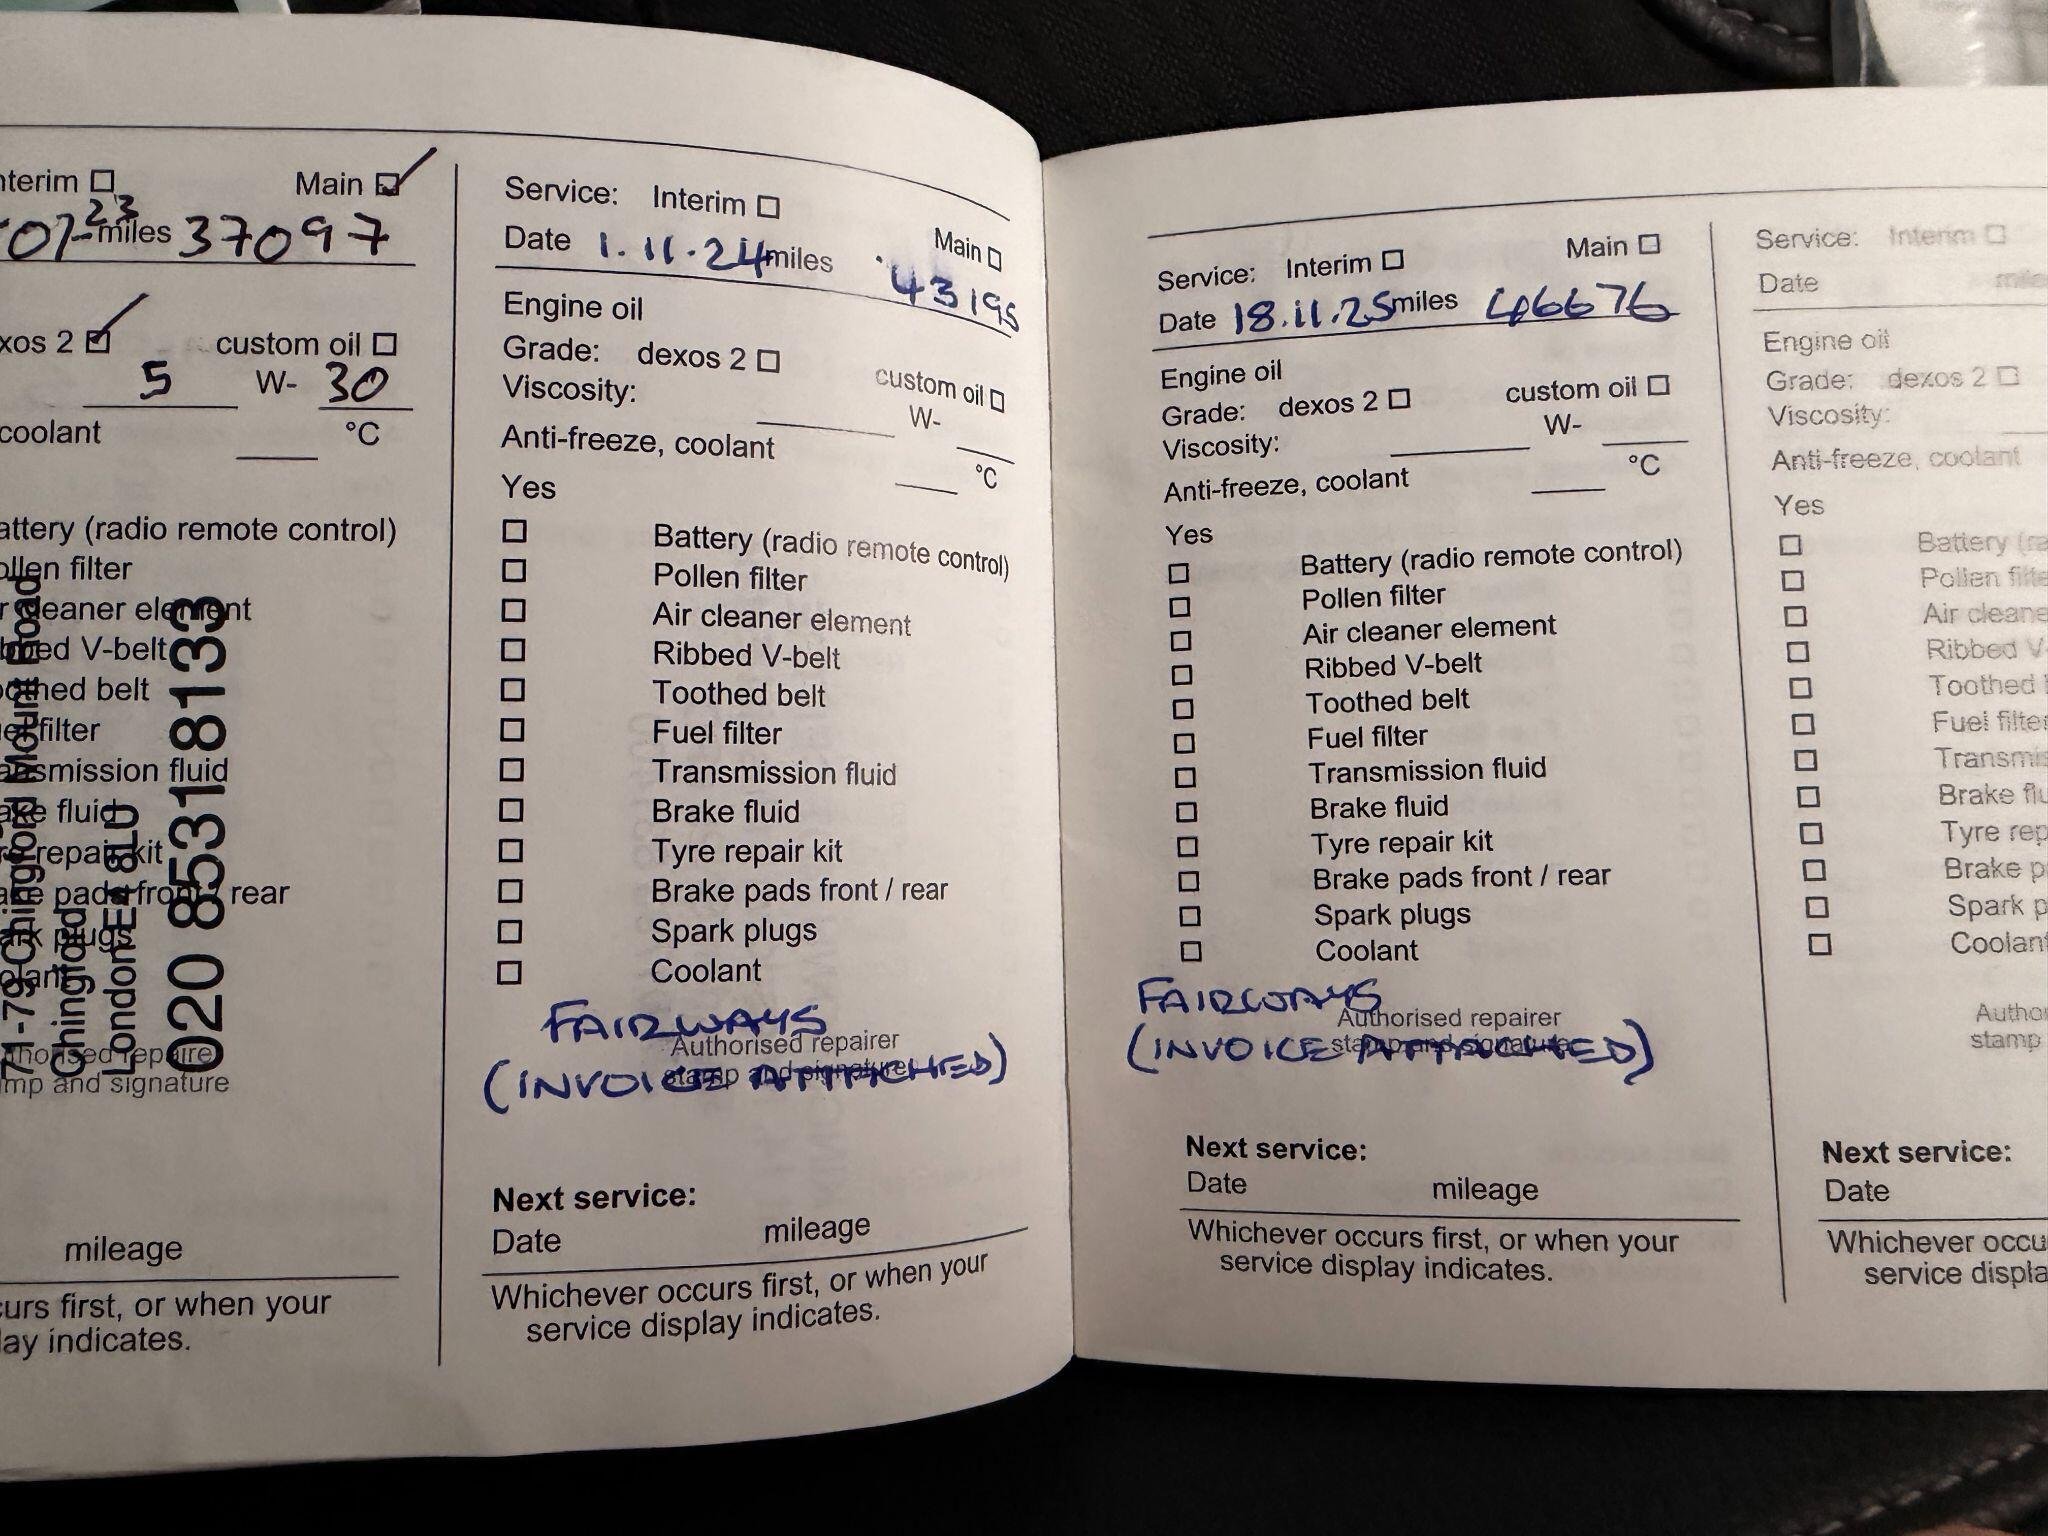 nterim ☐ Main ☑
07-23 miles 37097
xos 2 ☑ custom oil ☐
5 W- 30
coolant °C
attery (radio remote control)
ollen filter
r cleaner element
bbed V-belt
oothed belt
el filter
ansmission fluid
ake fluid
re repair kit
ake pads front / rear
ark plugs
olant
71-79 Chingford Mount Road
Chingford
London E4 8LU
020 8531 8133
thorised repairer
mp and signature
mileage
curs first, or when your
lay indicates.
Service: Interim ☐ Main ☐
Date 1.11.24 miles 43195
Engine oil
Grade: dexos 2 ☐ custom oil ☐
Viscosity: W-
Anti-freeze, coolant °C
Yes
☐ Battery (radio remote control)
☐ Pollen filter
☐ Air cleaner element
☐ Ribbed V-belt
☐ Toothed belt
☐ Fuel filter
☐ Transmission fluid
☐ Brake fluid
☐ Tyre repair kit
☐ Brake pads front / rear
☐ Spark plugs
☐ Coolant
FAIRWAYS
Authorised repairer
stamp and signature
(INVOICE ATTACHED)
Next service:
Date mileage
Whichever occurs first, or when your
service display indicates.
Service: Interim ☐ Main ☐
Date 18.11.25 miles 46676
Engine oil
Grade: dexos 2 ☐ custom oil ☐
Viscosity: W-
Anti-freeze, coolant °C
Yes
☐ Battery (radio remote control)
☐ Pollen filter
☐ Air cleaner element
☐ Ribbed V-belt
☐ Toothed belt
☐ Fuel filter
☐ Transmission fluid
☐ Brake fluid
☐ Tyre repair kit
☐ Brake pads front / rear
☐ Spark plugs
☐ Coolant
FAIRWAYS
Authorised repairer
stamp and signature
(INVOICE ATTACHED)
Next service:
Date mileage
Whichever occurs first, or when your
service display indicates.
Service: Interim ☐
Date mile
Engine oil
Grade: dexos 2 ☐
Viscosity:
Anti-freeze, coolant
Yes
☐ Battery (ra
☐ Pollen filte
☐ Air cleane
☐ Ribbed V-
☐ Toothed b
☐ Fuel filter
☐ Transmis
☐ Brake flu
☐ Tyre rep
☐ Brake p
☐ Spark p
☐ Coolant
Author
stamp
Next service:
Date
Whichever occu
service displa